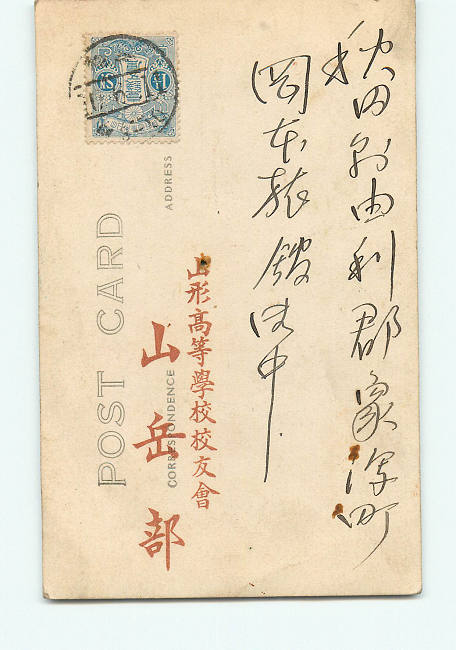 秋田県由利郡象潟町
岡本旅館御中
山形高等學校校友會
山岳部
POST CARD
CORRESPONDENCE
ADDRESS